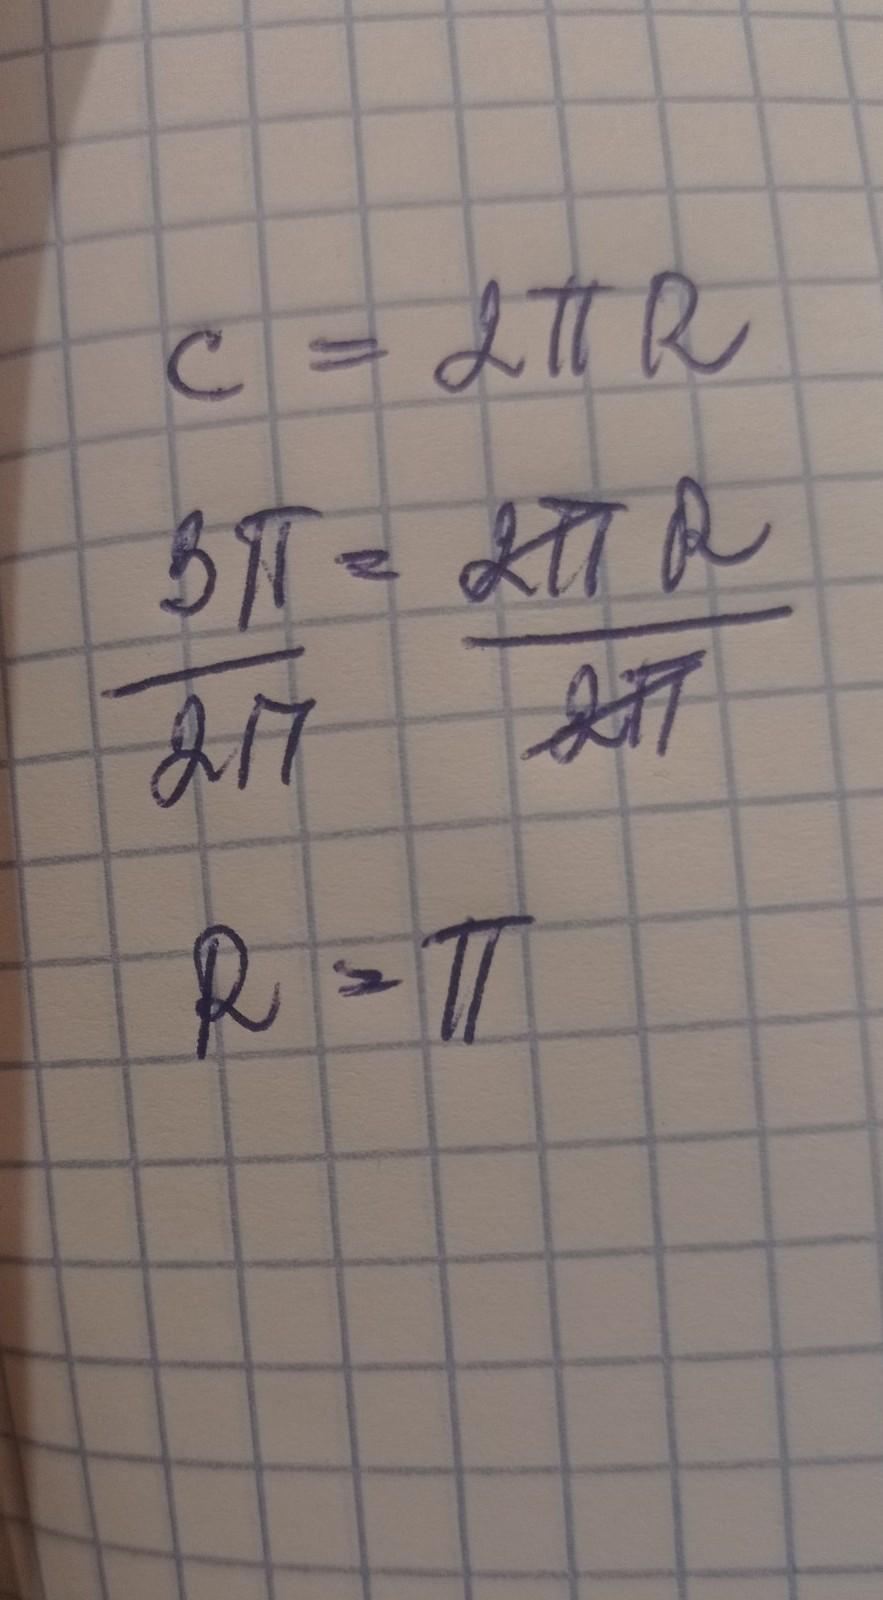 c = 2π R
3π = 2π R
2π 2π
R = π